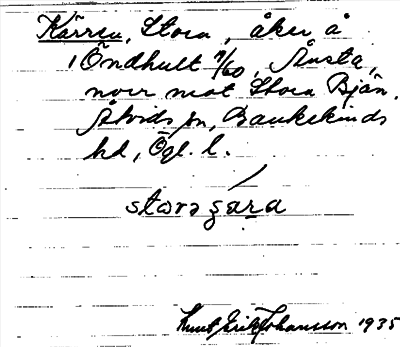 Kärren, Stora, åker å
1 Öndhult 7/60, Ånsta,
norr mot Stora Bjän.
Åtvids sn, Bankekinds
hd, Ögl. l.
storə ʒæra
Knut Erik Johansson 1935